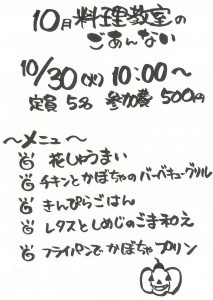 10月料理教室の
ごあんない
10/30(火) 10:00〜
定員 5名 参加費 500円
〜メニュー〜
花しゅうまい
チキンとかぼちゃのバーベキューグリル
きんぴらごはん
レタスとしめじのごま和え
フライパンでかぼちゃプリン